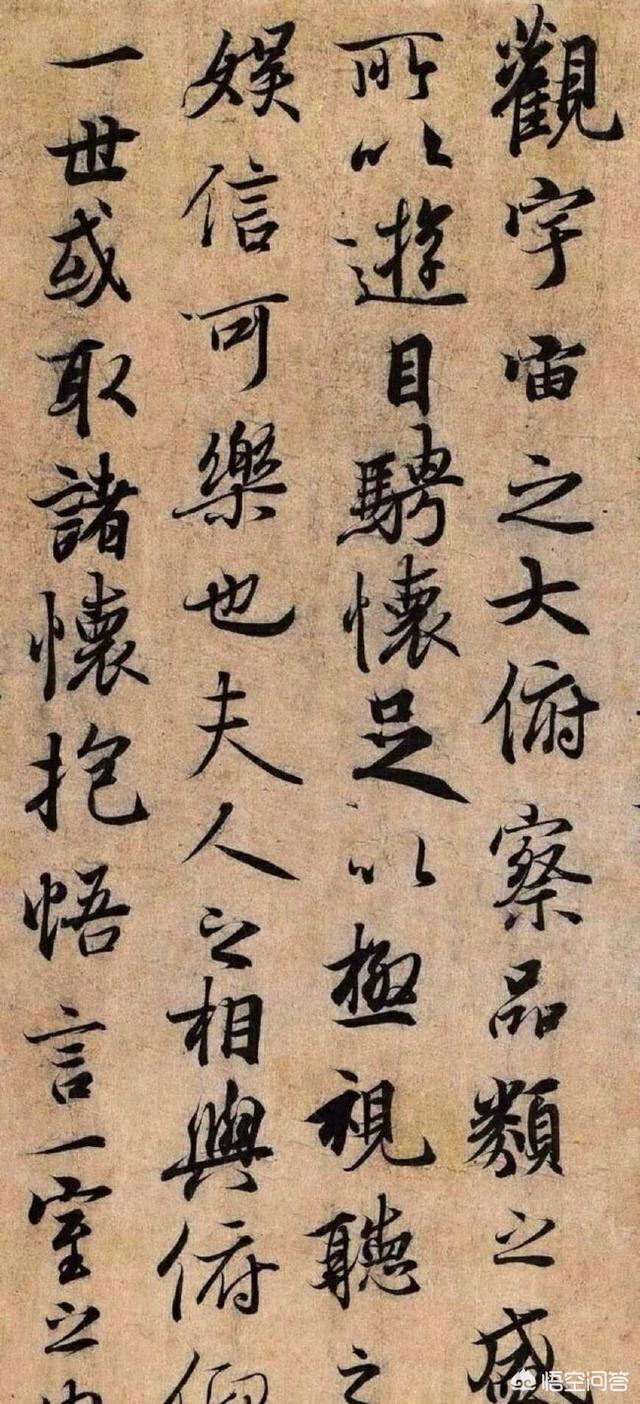 觀宇宙之大俯察品類之盛
所以遊目騁懷足以極視聽之
娛信可樂也夫人之相與俯仰
一世或取諸懷抱悟言一室之内
悟空问答